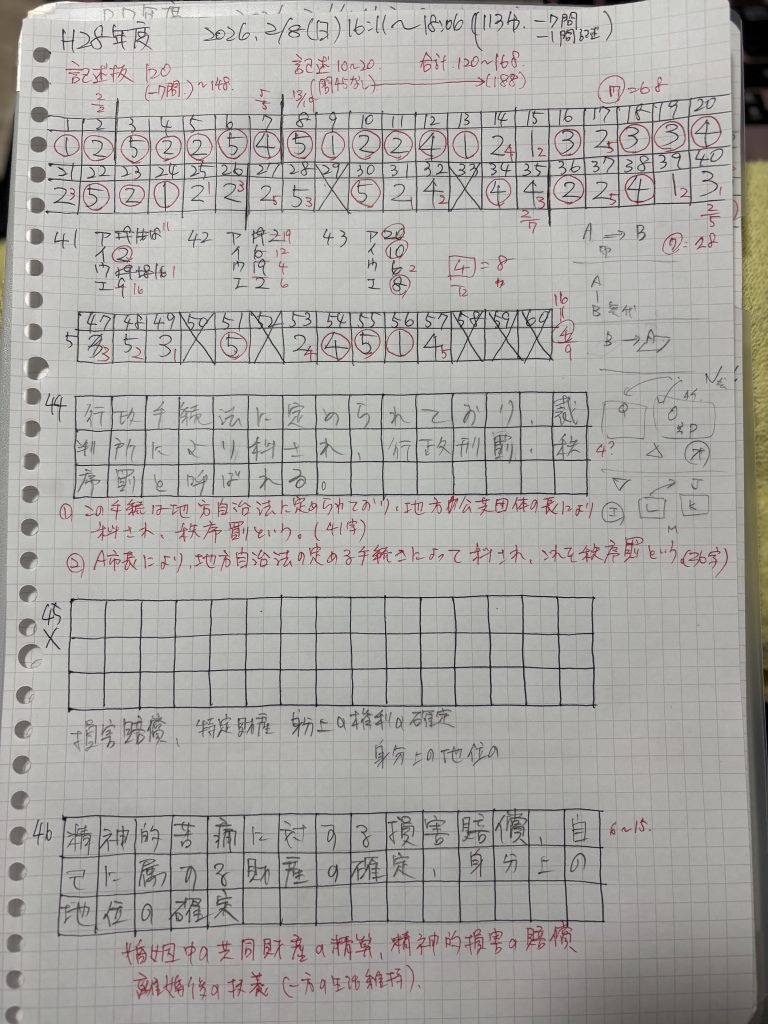 H28年度 2026. 2/8(日) 16:11〜18:06 (113分. −7問 −1問記述)
記述抜 120 (−7問)〜148.
記述 10〜20. (問45なし)
合計 120〜168. (188)
㋐=68
1 2 3 4 5 6 7 8 9 10 11 12 13 14 15 16 17 18 19 20
① ② ⑤ ② ② ⑤ ④ ⑤ ① ② ② ④ ① 2 4 1 2 ③ 2 5 ③ ③ ④
21 22 23 24 25 26 27 28 29 30 31 32 33 34 35 36 37 38 39 40
2 3 ⑤ ② ① 2 1 2 3 2 5 5 3 X ⑤ 2 1 4 2 X ④ 4 3 ② 2 5 ④ 1 2 3 1
2/7 2/5
41 ア 11 42 ア 19 43 ア 20
イ ② イ 6 12 イ ⑩
ウ 1 ウ 19 4 ウ 6 2
エ 9 16 エ 2 6 エ ⑧
4/12 = 8
A → B
㋐: 28
47 48 49 50 51 52 53 54 55 56 57 58 59 60
3 3 5 2 3 1 X ⑤ X 2 4 ④ ⑤ ① 4 5 X X X
B → A
44 行政手続法に定められており、裁
判所により科され、行政刑罰、秩
序罰と呼ばれる。
① この手続は地方自治法に定められており、地方公共団体の長により
科され、秩序罰という。(41字)
② A市長により、地方自治法の定める手続きによって科され、これを秩序罰という。(36字)
45
X
損害賠償、特定財産 身分上の権利の確定
身分上の地位の
46 精神的苦痛に対する損害賠償、自
己に属する財産の確定、身分上の
地位の確定
6〜15.
婚姻中の共同財産の精算、精神的損害の賠償
離婚後の扶養(一方の生活維持).